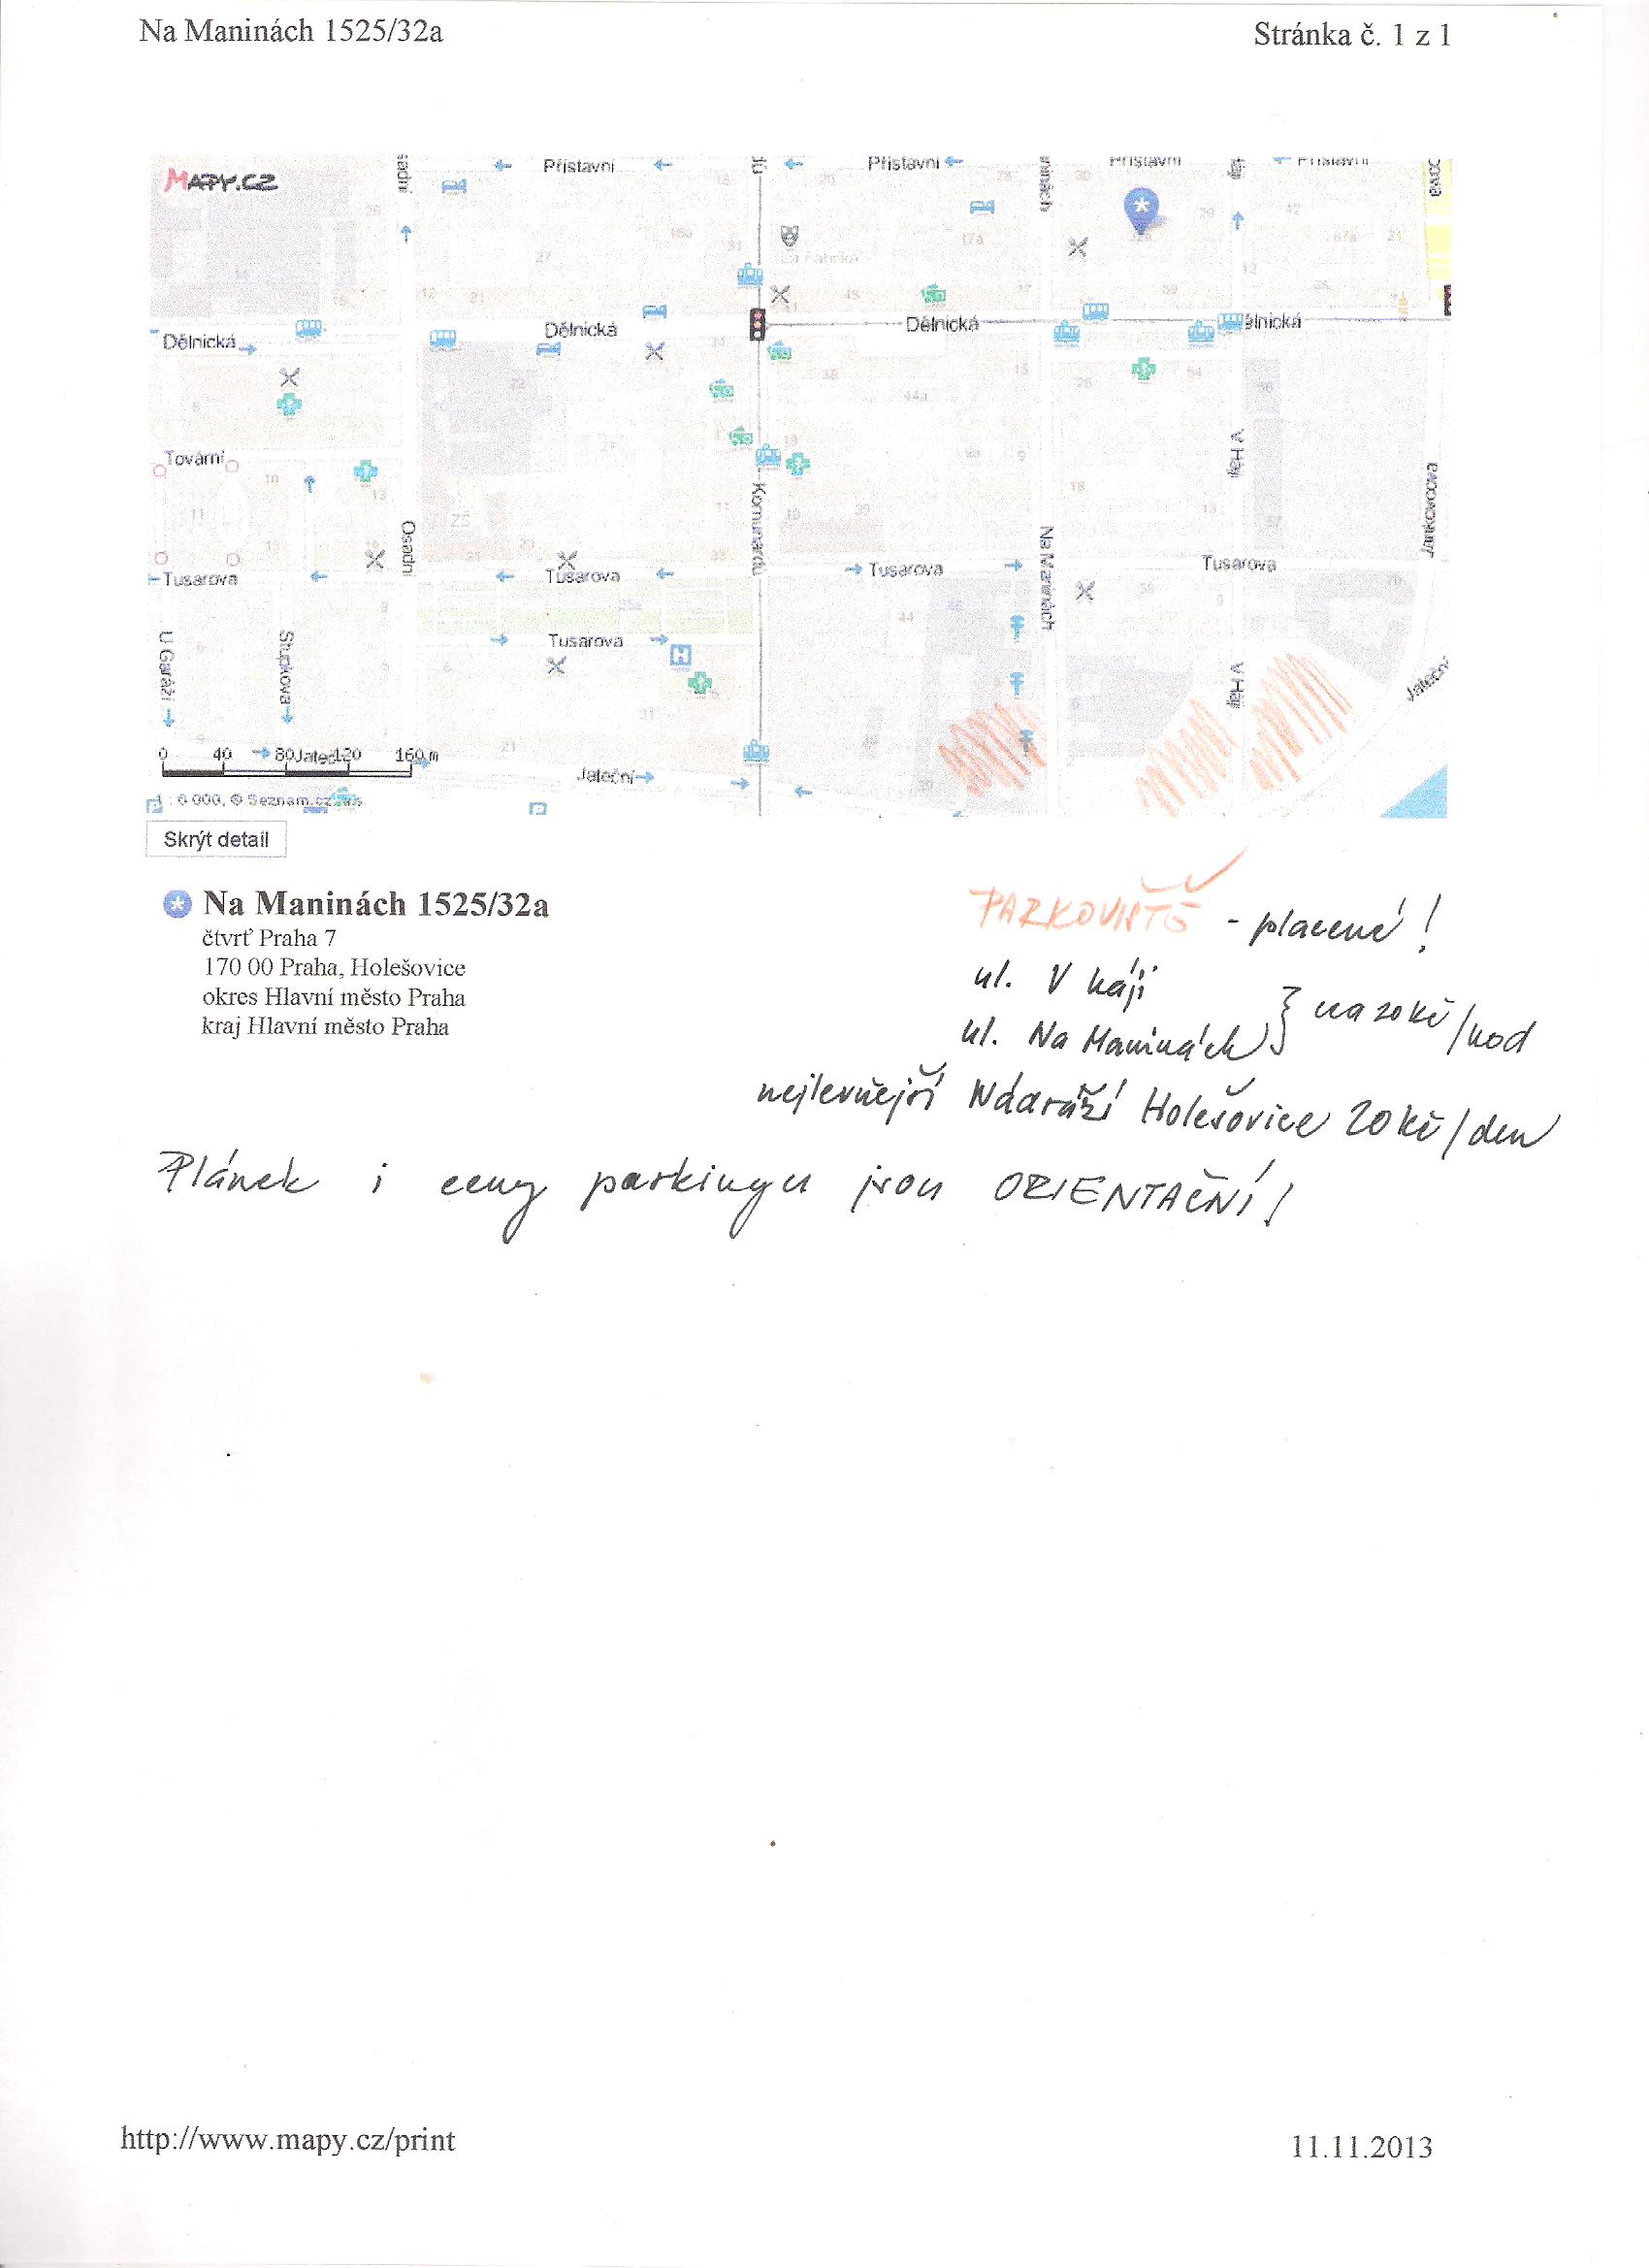 Na Maninách 1525/32a
Stránka č. 1 z 1
MAPY.CZ
Přístavní
Přístavní
Přístavní
Přístavní
Dělnická
Dělnická
Dělnická
ělnická
Tovární
Osadní
Komunardů
Na Maninách
V Háji
Tusarova
Tusarova
Tusarova
Tusarova
Tusarova
U Garáží
Stupkova
V Háji
Jateční
0 40 80 120 160 m
Jateční
Skrýt detail
Na Maninách 1525/32a
čtvrť Praha 7
170 00 Praha, Holešovice
okres Hlavní město Praha
kraj Hlavní město Praha
PARKOVIŠTĚ - placené!
ul. V háji
ul. Na Maninách } na 20 kč/hod
nejlevnější Nádraží Holešovice 20 kč/den
Plánek i ceny parkingu jsou ORIENTAČNÍ!
http://www.mapy.cz/print
11.11.2013